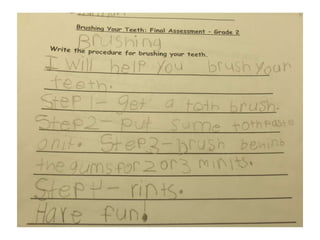 Brushing Your Teeth: Final Assessment - Grade 2
Brushing
Write the procedure for brushing your teeth.
I will help you brush your
teeth.
Step 1- get a toth brush.
Step2- put sume tothpaste
onit. Step3- brush behind
the gums for 2 or 3 minits.
Step 4- rints.
Have fun!